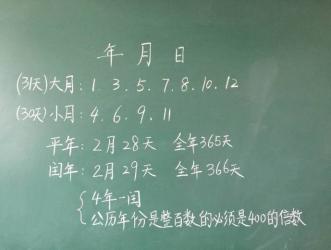 年 月 日
(31天)大月：1．3．5．7．8．10．12
(30天)小月：4．6．9．11
平年：2月28天 全年365天
闰年：2月29天 全年366天
{4年一闰
公历年份是整百数的必须是400的倍数